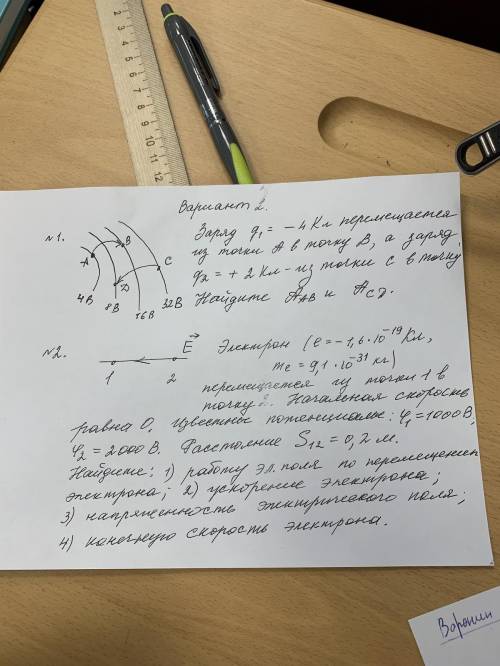 2 3 4 5 6 7 8 9 10 11 12
Вариант 2.
№1.
A B C D
4В 8В 16В 32В
Заряд q₁ = − 4 Кл перемещается
из точки A в точку B, а заряд
q₂ = + 2 Кл - из точки C в точку
Найдите A_AB и A_CD.
№2.
1 2 E⃗
Электрон (e = −1,6·10⁻¹⁹ Кл,
mₑ = 9,1·10⁻³¹ кг)
перемещается из точки 1 в
точку 2. Начальная скорость
равна 0, Известны потенциалы: φ₁ = 1000 В,
φ₂ = 2000 В. Расстояние S₁₂ = 0,2 м.
Найдите: 1) работу эл. поля по перемещению
электрона; 2) ускорение электрона;
3) напряженность электрического поля;
4) конечную скорость электрона.
Воронин